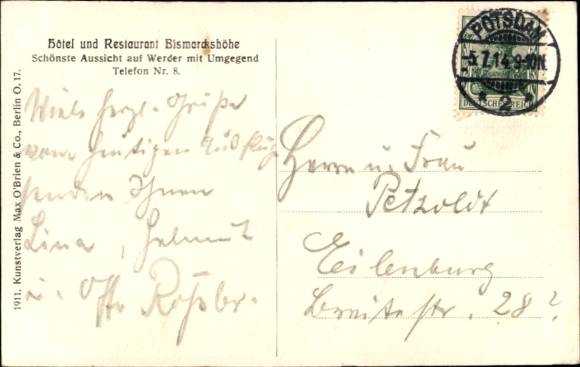 Hôtel und Restaurant Bismarckshöhe
Schönste Aussicht auf Werder mit Umgegend
Telefon Nr. 8.
1911. Kunstverlag Max O'Brien & Co., Berlin O. 17.
POTSDAM
-5.7.14.9-10N.
* 2 *
DEUTSCHES REICH
Viele herzl. Grüße
vom heutigen Ausflug
senden Ihnen
Lina, Helmut
u. Otto
Herrn u. Frau
Petzoldt
Eilenburg
Breitestr. 28?